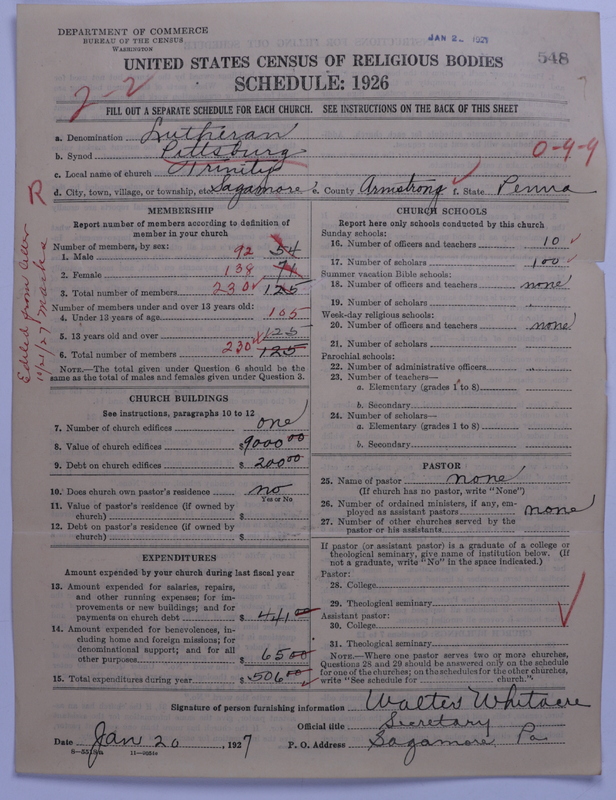 DEPARTMENT OF COMMERCE
BUREAU OF THE CENSUS
WASHINGTON
JAN 2 1927
548
UNITED STATES CENSUS OF RELIGIOUS BODIES
SCHEDULE: 1926
2-2
FILL OUT A SEPARATE SCHEDULE FOR EACH CHURCH. SEE INSTRUCTIONS ON THE BACK OF THIS SHEET
a. Denomination Lutheran
b. Synod Pittsburg
0-4-9
c. Local name of church Trinity
d. City, town, village, or township, etc. Sagamore e. County Armstrong f. State Penna
R
Edited from letter
MEMBERSHIP
Report number of members according to definition of
member in your church
Number of members, by sex:
1. Male 92 54
2. Female 138 71
3. Total number of members 230 125
Number of members under and over 13 years old:
4. Under 13 years of age 105
5. 13 years old and over 125
6. Total number of members 230 125
NOTE.—The total given under Question 6 should be
same as the total of males and females given under Question 3.
CHURCH BUILDINGS
See instructions, paragraphs 10 to 12
7. Number of church edifices one
8. Value of church edifices $9000 00
9. Debt on church edifices $200 00
10. Does church own pastor's residence no
Yes or No
11. Value of pastor's residence (if owned by
church) $
12. Debt on pastor's residence (if owned by
church) $
EXPENDITURES
Amount expended by your church during last fiscal year
13. Amount expended for salaries, repairs,
and other running expenses; for im-
provements or new buildings; and for
payments on church debt $441 00
14. Amount expended for benevolences, in-
cluding home and foreign missions; for
denominational support; and for all
other purposes $65 00
15. Total expenditures during year $506 00
CHURCH SCHOOLS
Report here only schools conducted by this church
Sunday schools:
16. Number of officers and teachers 10
17. Number of scholars 100
Summer vacation Bible schools:
18. Number of officers and teachers none
19. Number of scholars "
Week-day religious schools:
20. Number of officers and teachers none
21. Number of scholars "
Parochial schools:
22. Number of administrative officers "
23. Number of teachers—
a. Elementary (grades 1 to 8)
b. Secondary
24. Number of scholars—
a. Elementary (grades 1 to 8)
b. Secondary
PASTOR
25. Name of pastor none
(If church has no pastor, write "None")
26. Number of ordained ministers, if any, em-
ployed as assistant pastors none
27. Number of other churches served by the
pastor or his assistants
If pastor (or assistant pastor) is a graduate of a college or
theological seminary, give name of institution below. (If
not a graduate, write "No" in the space indicated.)
Pastor:
28. College
29. Theological seminary
Assistant pastor:
30. College
31. Theological seminary
NOTE.—Where one pastor serves two or more churches,
Questions 28 and 29 should be answered only on the schedule
for one of the churches; on the schedules for the other churches,
write "See schedule for church."
Signature of person furnishing information Walter Whitacre
Official title Secretary
Date Jan 20, 1927 P. O. Address Sagamore Pa